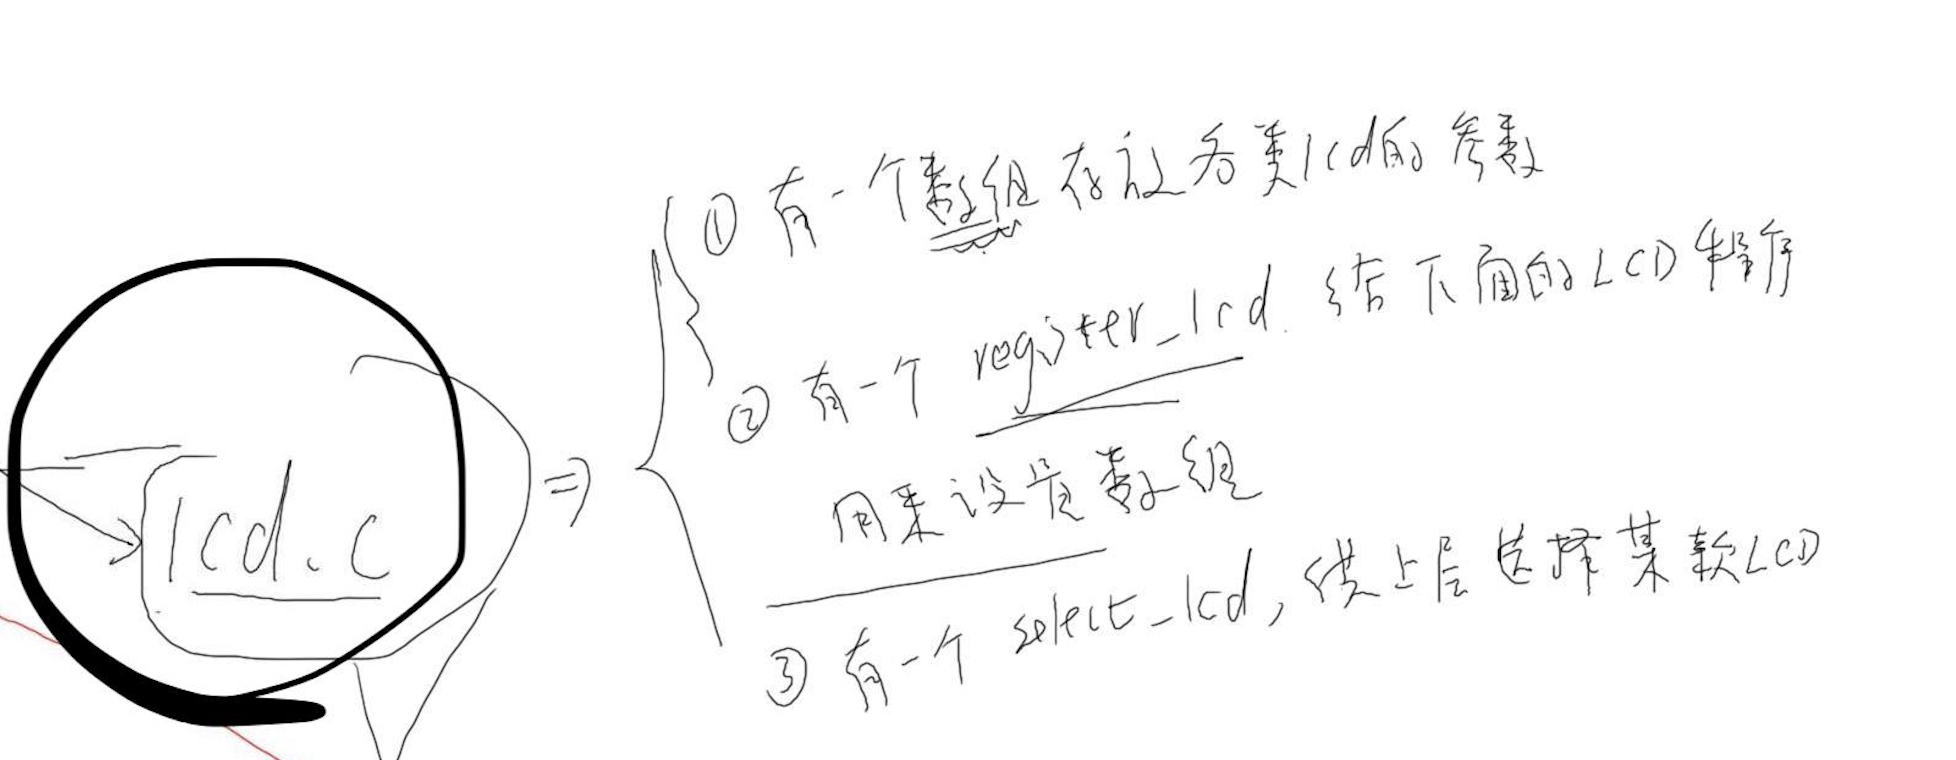 lcd.c
① 有一个数组存放各类lcd的参数
② 有一个 register_lcd 给下面的LCD程序
用来设置数组
③ 有一个 select_lcd, 供上层选择某款LCD